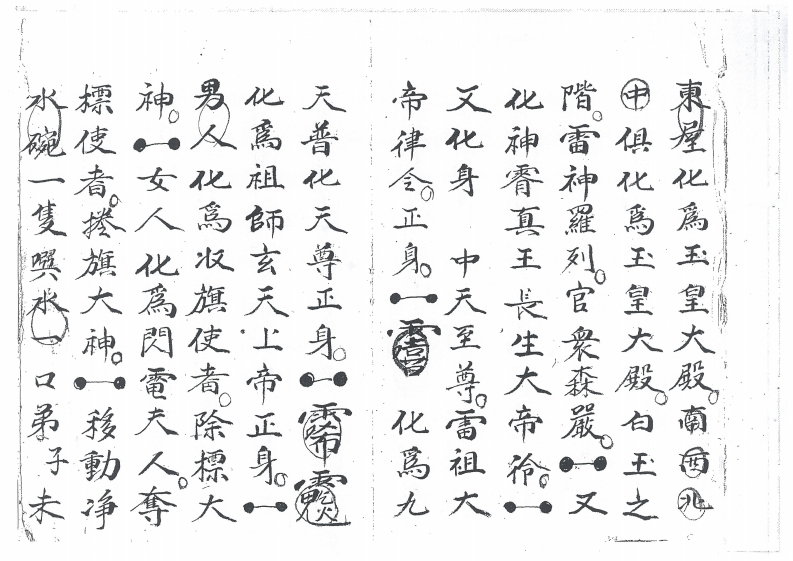 東屋化爲玉皇大殿。南西北
中俱化爲玉皇大殿。白玉之
階。雷神羅列。官衆森嚴。又
化神霄真王長生大帝
又化身　中天至尊。雷祖大
帝律令。正身。　化爲九
天普化天尊正身。
化爲祖師玄天上帝正身。
男人化爲收旗使者。除標大
神。女人化爲閃電夫人。奪
標使者。捲旗大神。移動净
水碗一隻噀水一口弟子未